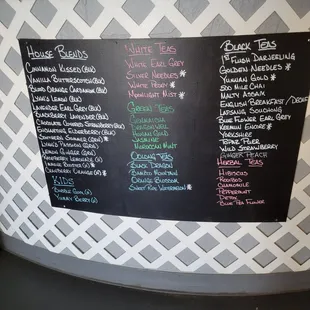 House Blends
Cinnamon Kissed (Blk)
Vanilla Butterscotch (Blk)
Blood Orange Cardamom (Blk)
Lyon's Lemon (Blk)
Lavender Earl Grey (Blk)
Blackberry Lavender (Blk)
Chocolate Covered Strawberry (Blk)
Enchanting Elderberry (Blk)
Lyon's Passion (Grn)
Lemon Ginger (Grn)
Raspberry Lemonade
Cranberry Orange
Kids
Bubble Gum
Yummy Berry
White Teas
White Earl Grey
Silver Needles *
White Peony *
Moonlight Mist *
Green Teas
Genmaicha
Dragonwell
Jasmine
Moroccan Mint
Oolong Teas
Black Dragon
Bamboo Mountain
Orange Blossom
Sweet Ruby Watermelon *
Black Teas
1st Flush Darjeeling
Golden Needles *
Yunnan Gold *
500 Mile Chai
Malty Assam
English Breakfast / Decaf
Lapsang Souchong
Blue Flower Earl Grey
Keemun Encore *
Yorkshire
Topaz Puer
Wild Strawberry
Ginger Peach
Herbal Teas
Hibiscus
Rooibos
Chamomile
Peppermint
Detox
Blue Pea Flower